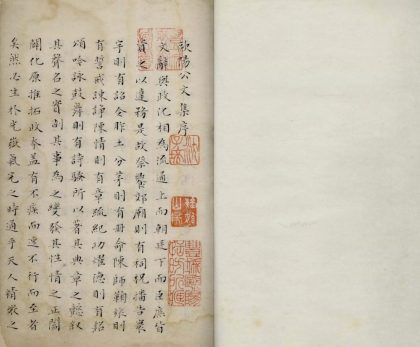 歐陽公文集序
文辭與政化相為流通上而朝廷下而臣庶皆
資之以達務是故祭饗郊廟則有祠祝播告寰
宇則有詔令胙土分茅則有冊命陳師鞠旅則
有誓戒諫諍陳情則有章疏紀功燿德則有銘
頌吟詠鼓舞則有詩騷所以著其典章之懿叙
其聲名之實制其事為之變發其性情之正闔
闢化原推拓政本蓋有不疾而速不行而至者
矣然必生於光嶽氣完之時通乎天人精微之